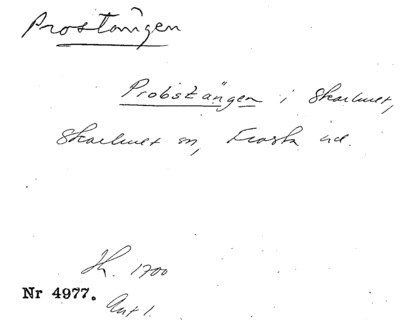 Prostängen
Probstängen i Skarhult,
Skarhult sn, Frosta hd.
Jh. 1700
Nr 4977. Akt 1.